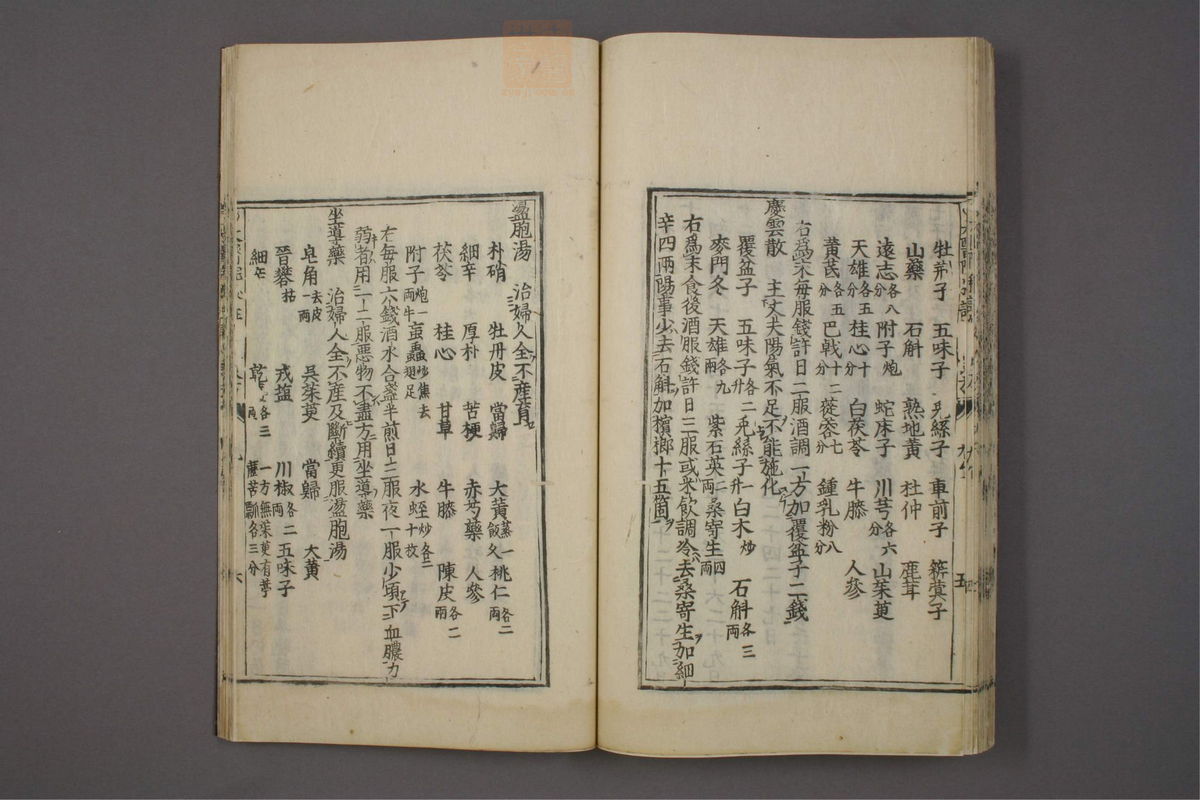 牡荊子 五味子 兎絲子 車前子 菥蓂子
山藥 石斛 熟地黄 杜仲 鹿茸
遠志各八分 附子炮 蛇床子 川芎各六分 山茱萸
天雄各五分 桂心十分 白茯苓 牛膝 人參
黄芪各五分 巴戟十二分 蓯蓉七分 鍾乳粉八分
右為末毎服錢許日二服酒調一方加覆盆子二錢
慶雲散 主丈夫陽氣不足不能施化
覆盆子 五味子各二升 兎絲子一升 白术炒 石斛各三兩
麥門冬 天雄各九兩 紫石英二兩 桑寄生四兩
右爲末食後酒服錢許日三服或米飲調冷去桑寄生加細
辛四兩陽事少去石斛加檳榔十五箇
盪胞湯 治婦人全不産育
朴硝 牡丹皮 當歸 大黄蒸一飯久 桃仁各二兩
細辛 厚朴 苦梗 赤芍藥 人參
茯苓 桂心 甘草 牛膝 陳皮各二兩
附子炮一兩半 䖟蟲炒焦去翅足 水蛭炒各十枚
右毎服六錢酒水合盞半煎日三服夜一服少頃下血膿力
弱者用一二服惡物不盡方用坐導藥
坐導藥 治婦人全不産及斷續更服盪胞湯
皂角去皮一兩 呉茱萸 當歸 大黄
晉礬枯 戎盐 川椒各二兩 五味子
細辛 乾 各三兩 一方無茱萸有葶藶苦瓠各三分